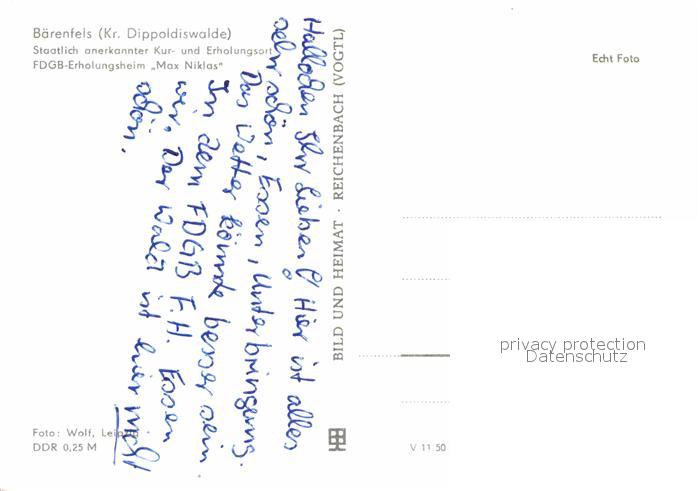 Bärenfels (Kr. Dippoldiswalde)
Staatlich anerkannter Kur- und Erholungsort
FDGB-Erholungsheim „Max Niklas"
Echt Foto
Ihr Lieben! Hier ist alles
sehr schön, Essen, Unterbringung.
Das Wetter könnte besser sein
In dem FDGB F.H. Essen
wir. Der Wald ist hier noch
schön.
BILD UND HEIMAT · REICHENBACH (VOGTL)
privacy protection
Datenschutz
Foto: Wolf, Leipzig
DDR 0,25 M
V 11 50